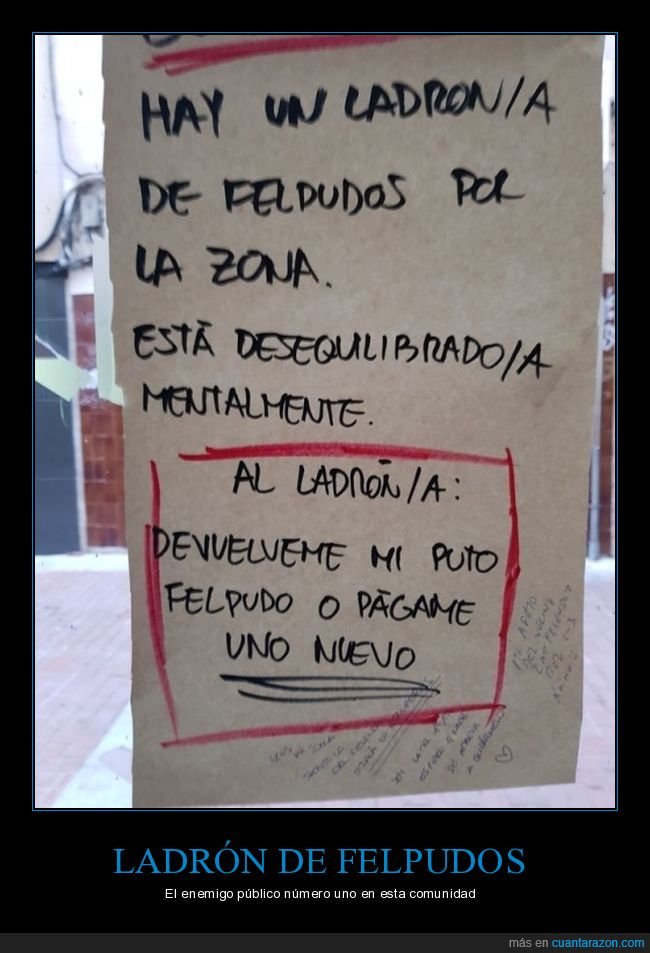 HAY UN LADRON/A
DE FELPUDOS POR
LA ZONA.
ESTÁ DESEQUILIBRADO/A
MENTALMENTE.
AL LADRÓN/A:
DEVUELVEME MI PUTO
FELPUDO O PÁGAME
UNO NUEVO
LADRÓN DE FELPUDOS
El enemigo público número uno en esta comunidad
más en cuantarazon.com